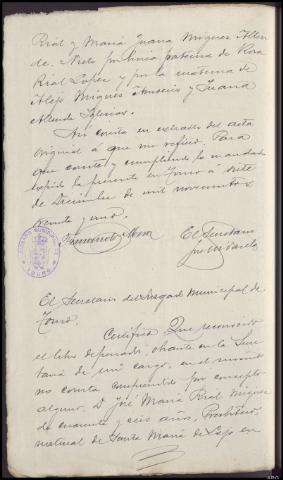 Rial y María Juana Miguez Allen
de. Nieto por línea paterna de Rosa
Rial Lopez y por la materna de
Alejo Miguez Ansesio y Juana
Allende Iglesias.
Así consta en extracto del acta
original á que me refiero. Para
que conste y cumpliendo lo mandado
expido la presente en Touro á siete
de Diciembre de mil novecientos
veinte y uno.
El Secretario
JUZGADO MUNICIPAL
TOURO
El Secretario del Juzgado Municipal de
Touro.
Certifico: Que reconocido
el libro de penados, obrante en la Secre
taría de mi cargo, en el mismo
no consta comprendido por concepto
alguno, D. José María Rial Miguez
de cuarenta y seis años, Presbítero,
natural de Santa María de Lojo en